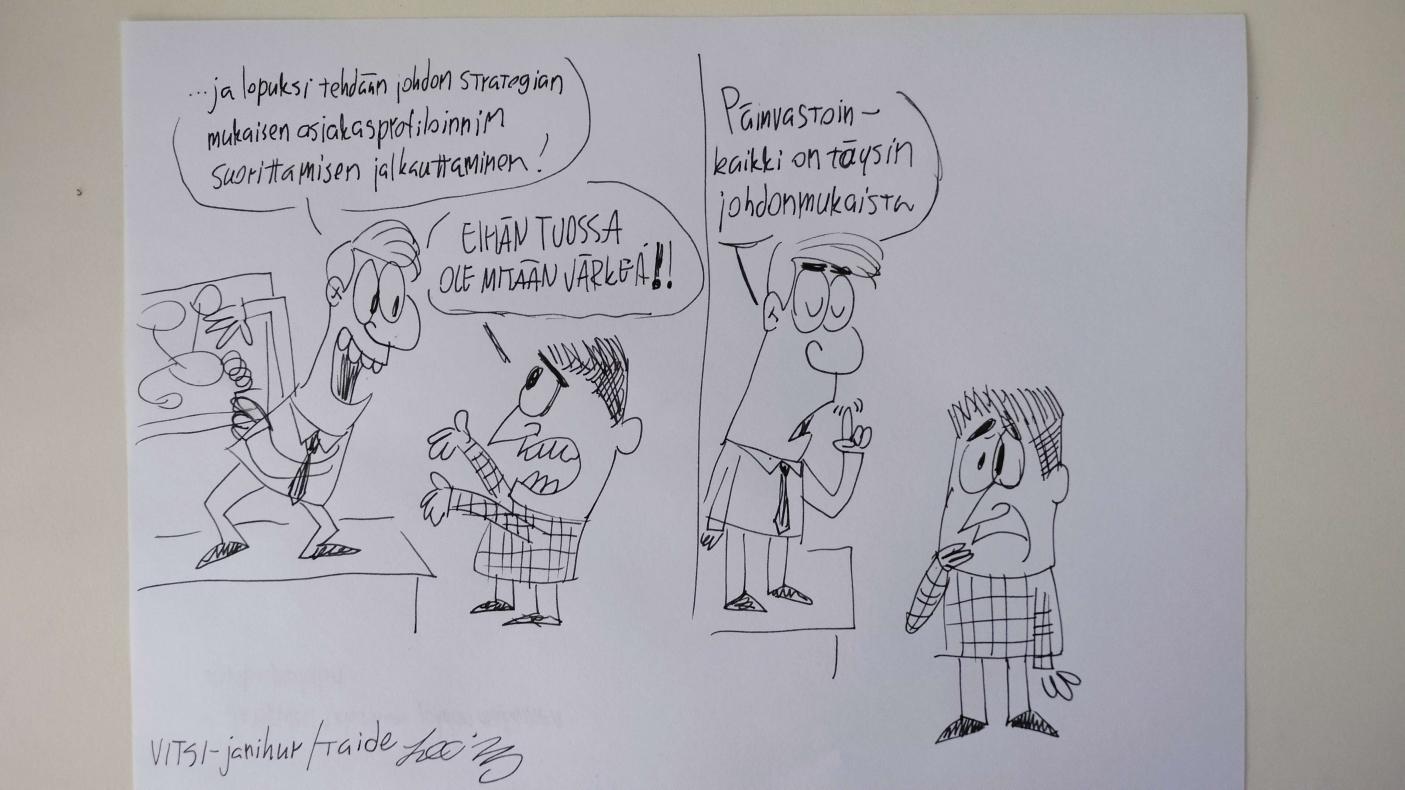 ...ja lopuksi tehdään johdon strategian
mukaisen asiakasprofiloinnin
suorittamisen jalkauttaminen!
EIHÄN TUOSSA
OLE MITÄÄN JÄRKEÄ!!
Päinvastoin –
kaikki on täysin
johdonmukaista
VITSI-janihur/Taide